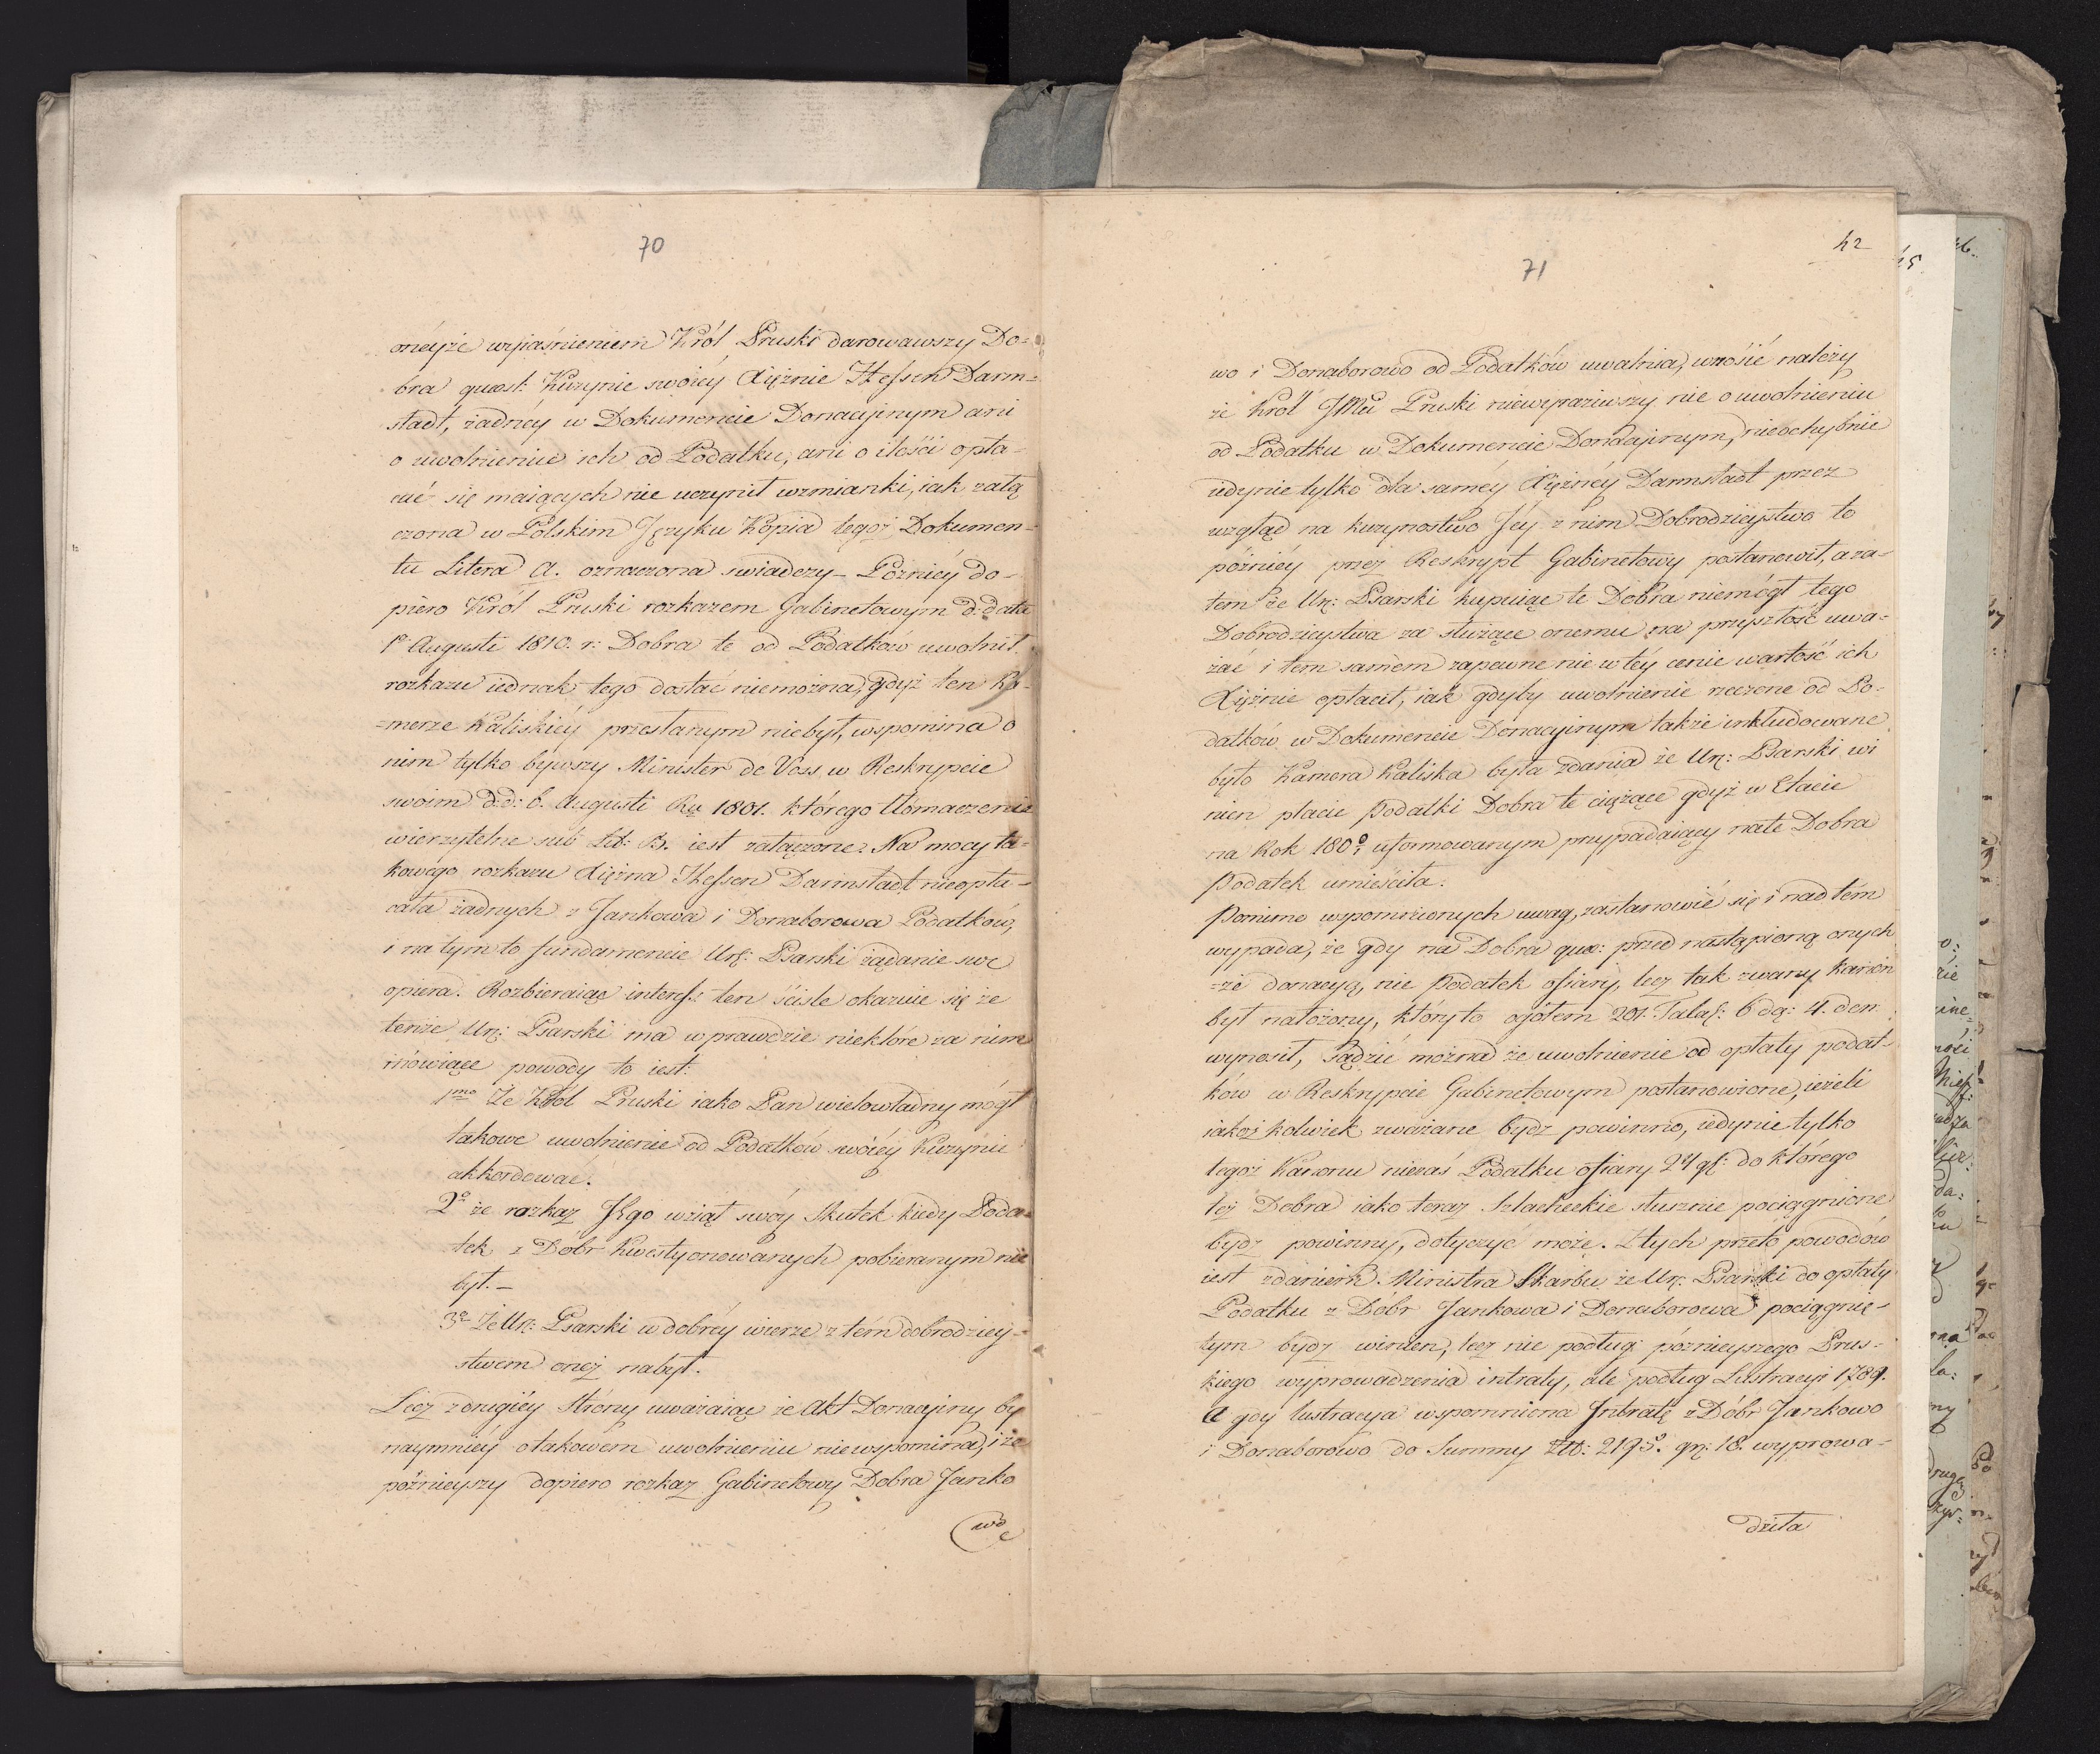 70
onéyże wyjaśnieniem Król Pruski darowawszy Do=
bra quaest: Kuzynie swoiey Xiężnie Hessen Darm=
stadt, żadney w Dokumencie Donacyinym ani
o uwolnieniu ich od Podatku, ani o ilości opła-
cać się maiących nie uczynił wzmianki, iak załą
czona w Polskim Języku Kopia tegoż Dokumen-
tu Litera A. oznaczona swiadczy – Pozniéy do-
piero Król Pruski rozkazem Gabinetowym d: data
1º Augusti 1810. r: Dobra te od Podatków uwolnił
rozkazu iednak tego dostać niemożna, gdyż ten Ka-
=merze Kaliskiéy przesłanym niebył, wspomina o
nim tylko bywszy Minister de Voss w Reskrypcie
swoim d.d: 6. Augusti Rų 1801. którego tłomaczenie
wierzytelne sub Lit: B. iest załączone. Na mocy ta-
kowego rozkazu Xiężna Hessen Darmstadt nieopła-
cała żadnych z Jankowa i Donaborowa Podatków,
i na tym to fundamencie Urz: Psarski żądanie swe
opiera. Rozbieraiąc interess: ten ściśle okazuie się że
tenże Ur: Psarski ma wprawdzie niektóre za nim
mówiące powody to iest:
1mo Że Król Pruski iako Pan wielowładny mógł
takowe uwolnienie od Podatków swoiéy Kuzynii
akkordować.
2º że rozkaz Jkgo wziął swóy Skutek kiedy Poda=
tek z Dobr kwestyonowanych pobieranym nie
był. –
3º Że Ur: Psarski w dobréy wierze z tém dobrodziey-
stwem oneż nabył.
Lecz z drugiéy Stróny uważaiąc że Akt Donacyiny by
naymniéy o takowém uwolnieniu niewspomina, i że
póżnieyszy dopiero rozkaz Gabinetowy Dobra Janko
wo
42
71
wo i Donaborowo od Podatków uwalnia, wnosić należy
że Król JMć Pruski niewyraziwszy nic o uwolnieniu
od Podatku w Dokumencie Donacyinym, nieochybnie
iedynie tylko dla saméy Xiężnéy Darmstadt przez
wzgląd na kuzynostwo Jéy z nim Dobrodzieystwo to
póżniéy przez Reskrypt Gabinetowy postanowił, a za-
tem że Ur: Psarski kupuiąc te Dobra niemógł tego
Dobrodzieystwa za służące onemu na przyszłość uwa-
żać i tem samém zapewne nie w téy cenie wartość ich
Xiężnie opłacił, iak gdyby uwolnienie rzeczone od Po-
datków w Dokumencie Donacyinym także inkludowane
było Kamera Kaliska była zdania że Ur: Psarski wi
nien płacić Podatki Dobra te ciążące gdyż w Etacie
na Rok 180⁰⁄₁ uformowanym przypadaiący na te Dobra
Podatek umieściła.
Pomimo wspomnionych uwag, zastanowić się i nad tém
wypada, że gdy na Dobra quae: przed nastąpioną onych
=że donacyą, nie Podatek ofiary, lecz tak zwany kanon
był nałożony, który to ogółem 201. Talar: 6 dg: 4. den
wynosił, Sądzić można że uwolnienie od opłaty podat-
ków w Reskrypcie Gabinetowym postanowione, ieżeli
iakoż kolwiek zważane bydz powinno, iedynie tylko
tegoż Kanonu niezaś Podatku ofiary 24 gr: do którego
też Dobra iako teraz Szlacheckie słusznie pociągnione
bydz powinny, dotyczyć może. Z tych przeto powodów
iest zdaniem Ministra Skarbu że Ur: Psarski do opłaty
Podatku z Dóbr Jankowa i Donaborowa pociągnię-
tym bydz winien, lecz nie podług póznieyszego Prus-
kiego wyprowadzenia intraty, ale podług Lustracyi 1789.
A gdy lustracya wspomniona Intratę z Dóbr Jankowo
i Donaborowo do Summy Złt: 2195. gr: 18. wyprowa-
dziła